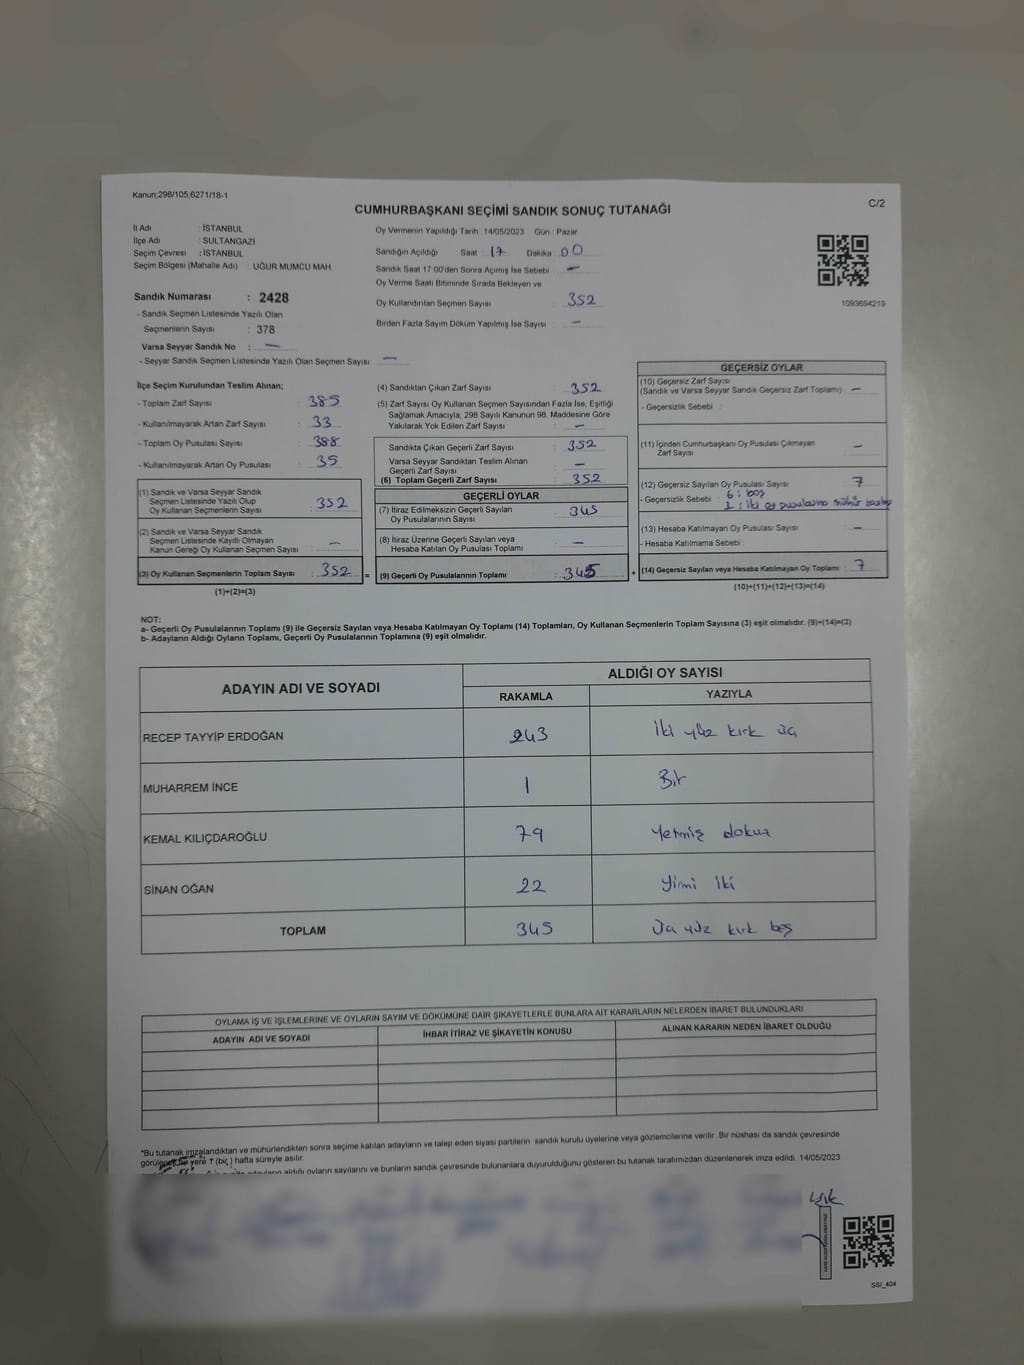 Kanun;298/105;6271/18-1
C/2
CUMHURBAŞKANI SEÇİMİ SANDIK SONUÇ TUTANAĞI
İl Adı : İSTANBUL
İlçe Adı : SULTANGAZİ
Seçim Çevresi : İSTANBUL
Seçim Bölgesi (Mahalle Adı) : UĞUR MUMCU MAH.
Sandık Numarası : 2428
- Sandık Seçmen Listesinde Yazılı Olan
Seçmenlerin Sayısı : 378
Varsa Seyyar Sandık No : —
- Seyyar Sandık Seçmen Listesinde Yazılı Olan Seçmen Sayısı: —
Oy Vermenin Yapıldığı Tarih :14/05/2023 Gün : Pazar
Sandığın Açıldığı Saat : 17 Dakika : 00
Sandık Saat 17:00'den Sonra Açımış İse Sebebi : —
Oy Verme Saati Bitiminde Sırada Bekleyen ve
Oy Kullandırılan Seçmen Sayısı : 352
Birden Fazla Sayım Döküm Yapılmış İse Sayısı : —
1093694219
İlçe Seçim Kurulundan Teslim Alınan;
- Toplam Zarf Sayısı : 385
- Kullanılmayarak Artan Zarf Sayısı : 33
- Toplam Oy Pusulası Sayısı : 388
- Kullanılmayarak Artan Oy Pusulası : 35
(1) Sandık ve Varsa Seyyar Sandık
Seçmen Listesinde Yazılı Olup
Oy Kullanan Seçmenlerin Sayısı : 352
(2) Sandık ve Varsa Seyyar Sandık
Seçmen Listesinde Kayıtlı Olmayan
Kanun Gereği Oy Kullanan Seçmen Sayısı : —
(3) Oy Kullanan Seçmenlerin Toplam Sayısı : 352
(1)+(2)=(3)
(4) Sandıktan Çıkan Zarf Sayısı : 352
(5) Zarf Sayısı Oy Kullanan Seçmen Sayısından Fazla İse, Eşitliği
Sağlamak Amacıyla, 298 Sayılı Kanunun 98. Maddesine Göre
Yakılarak Yok Edilen Zarf Sayısı : —
Sandıkta Çıkan Geçerli Zarf Sayısı : 352
Varsa Seyyar Sandıktan Teslim Alınan
Geçerli Zarf Sayısı : —
(6) Toplam Geçerli Zarf Sayısı : 352
GEÇERLİ OYLAR
(7) İtiraz Edilmeksizin Geçerli Sayılan
Oy Pusulalarının Sayısı : 345
(8) İtiraz Üzerine Geçerli Sayılan veya
Hesaba Katılan Oy Pusulası Toplamı : —
= (9) Geçerli Oy Pusulalarının Toplamı : 345
GEÇERSİZ OYLAR
(10) Geçersiz Zarf Sayısı
(Sandık ve Varsa Seyyar Sandık Geçersiz Zarf Toplamı) : —
- Geçersizlik Sebebi :
(11) İçinden Cumhurbaşkanı Oy Pusulası Çıkmayan
Zarf Sayısı : —
(12) Geçersiz Sayılan Oy Pusulası Sayısı : 7
- Geçersizlik Sebebi : 6 : boş
1 : iki oy pusulasına mühür basılmış
(13) Hesaba Katılmayan Oy Pusulası Sayısı : —
- Hesaba Katılmama Sebebi :
+ (14) Geçersiz Sayılan veya Hesaba Katılmayan Oy Toplamı : 7
(10)+(11)+(12)+(13)=(14)
NOT:
a- Geçerli Oy Pusulalarının Toplamı (9) ile Geçersiz Sayılan veya Hesaba Katılmayan Oy Toplamı (14) Toplamları, Oy Kullanan Seçmenlerin Toplam Sayısına (3) eşit olmalıdır. (9)+(14)=(3)
b- Adayların Aldığı Oyların Toplamı, Geçerli Oy Pusulalarının Toplamına (9) eşit olmalıdır.
ADAYIN ADI VE SOYADI
ALDIĞI OY SAYISI
RAKAMLA YAZIYLA
RECEP TAYYİP ERDOĞAN 243 İki yüz kırk üç
MUHARREM İNCE 1 Bir
KEMAL KILIÇDAROĞLU 79 Yetmiş dokuz
SİNAN OĞAN 22 Yimi iki
TOPLAM 345 Üç yüz kırk beş
OYLAMA İŞ VE İŞLEMLERİNE VE OYLARIN SAYIM VE DÖKÜMÜNE DAİR ŞİKAYETLERLE BUNLARA AİT KARARLARIN NELERDEN İBARET BULUNDUKLARI
ADAYIN ADI VE SOYADI İHBAR İTİRAZ VE ŞİKAYETİN KONUSU ALINAN KARARIN NEDEN İBARET OLDUĞU
*Bu tutanak imzalandıktan ve mühürlendikten sonra seçime katılan adayların ve talep eden siyasi partilerin sandık kurulu üyelerine veya gözlemcilerine verilir. Bir nüshası da sandık çevresinde
yere 1 (bir) hafta süreyle asılır.
aldığı oyların sayılarını ve bunların sandık çevresinde bulunanlara duyurulduğunu gösteren bu tutanak tarafımızdan düzenlenerek imza edildi. 14/05/2023
SSI_404